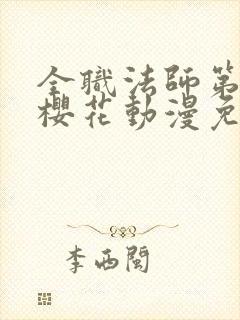 全職法師第
櫻花動漫免
李西閩